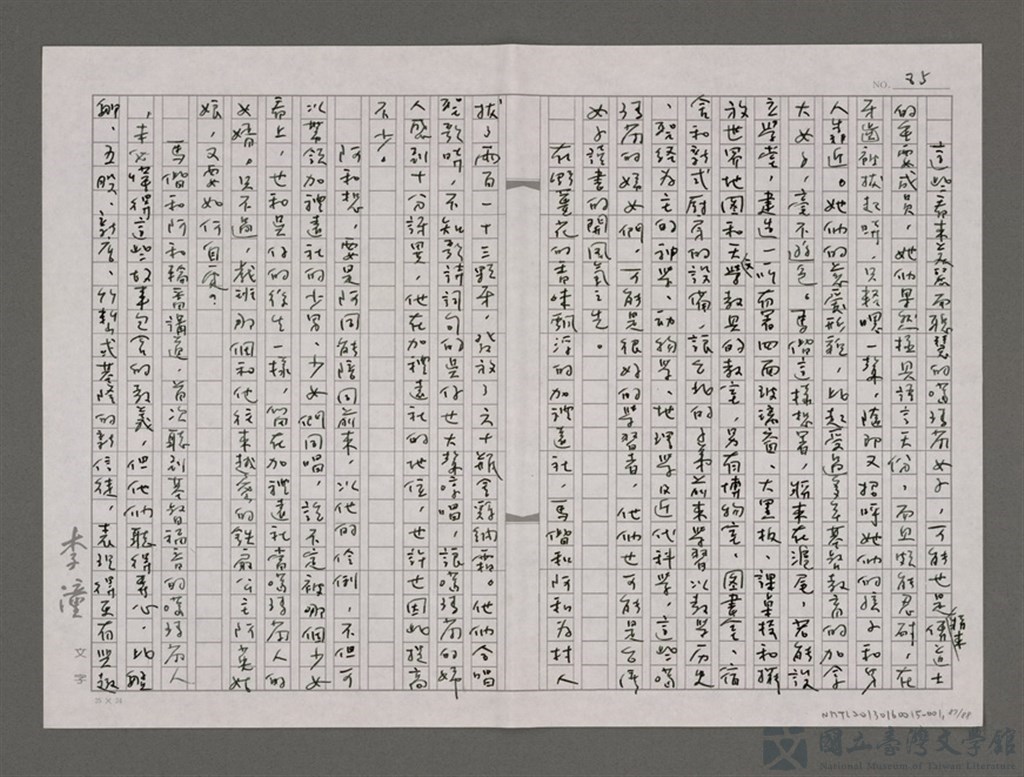 NO. 35
這些看來美麗而聰慧的噶瑪蘭女子，可能也是傳道士
的重要成員，她們果然極具語言天份，而且頗能忍耐，在
牙齒被拔起時，只輕喚一聲，隨即又招呼她們的孩子和男
人靠近。她們的慈愛形貌，比起受過多年基督教育的加拿
大女子，毫不遜色。馬偕這樣想著，將來在滬尾，若能設
立學堂，建造一所有著四面玻璃窗、大黑板、課桌椅和擺
放世界地圖和天文學教具的教室，另有博物室、圖書室、宿
舍和新式廚房的設備，讓台北的子弟前來學習以教學歷史
、聖經為主的神學、動物學、地理學及近代科學，這些噶
瑪蘭的婦女們，可能是很好的學習者，他們也可能是台灣
女子讀書的開風氣之先。
在野薑花的香味飄浮的加禮遠社，馬偕和阿和為村人
拔了兩百一十三顆牙，發放了六十瓶金雞納霜。他們合唱
聖歌時，不知歌詩詞句的吳仔也大聲哼唱，讓噶瑪蘭的婦
人感到十分訝異，他在加禮遠社的地位，也許也因此提高
不少。
阿和想，要是阿同能陪同前來，以他的伶俐，不但可
以帶領加禮遠社的少男、少女們同唱，說不定被哪個少女
看上，也和吳仔的後生一樣，留在加禮遠社當噶瑪蘭人的
女婿。只不過，戲班那個和他往來越密的鐵扇公主阿英姑
娘，又要如何自處？
馬偕和阿和輪番講道，首次聽到基督福音的噶瑪蘭人
，未必懂得這些故事包含的教義，但他們聽得專心，比艋
舺、五股、新店、竹塹或基隆的新信徒，表現得更有興趣
李潼
文字
25 X 24
NMTL20130160015-001, 87/88
國立臺灣文學館
National Museum of Taiwan Literature